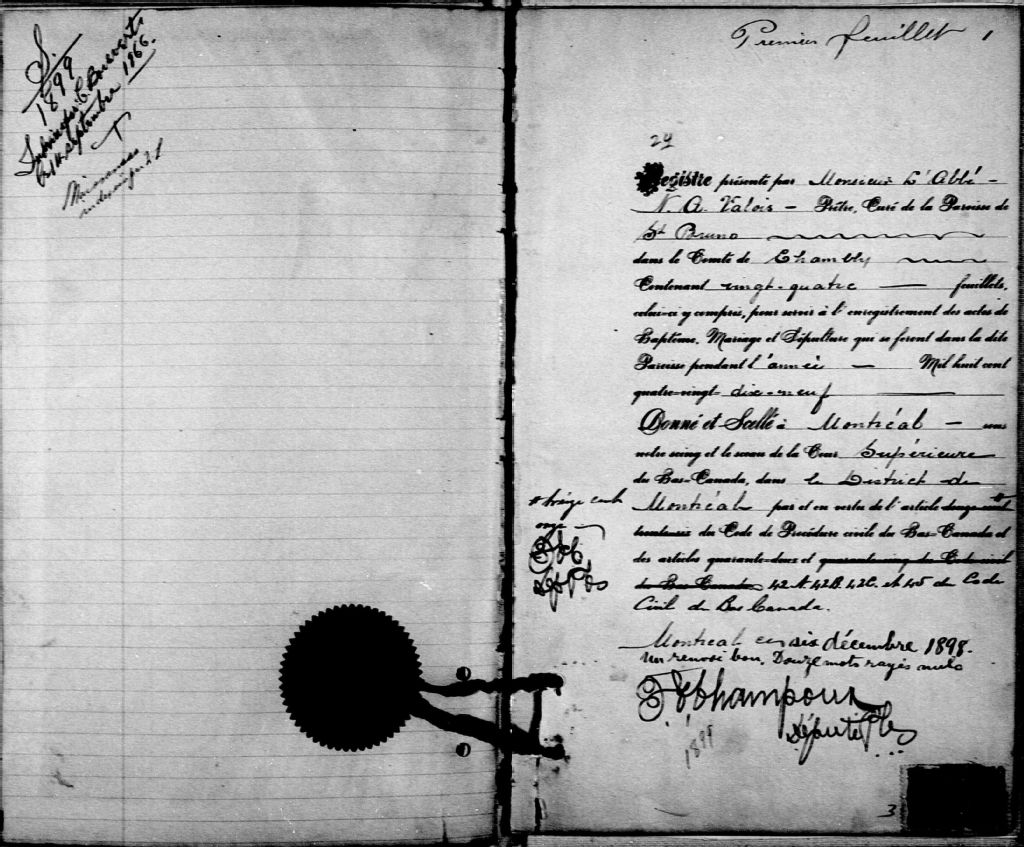 S.
1899
14 septembre 1966.
Premier feuillet 1
24
Registre présenté par Monsieur L'Abbé -
N. A. Valois - Prêtre, Curé de la Paroisse de
St Bruno
dans le Comté de Chambly
Contenant vingt-quatre — feuillets,
celui-ci y compris, pour servir à l'enregistrement des actes de
Baptême, Mariage et Sépulture qui se feront dans la dite
Paroisse pendant l'année — Mil huit cent
quatre-vingt-dix-neuf
Donné et Scellé à Montréal — sous
notre seing et le sceau de la Cour Supérieure
du Bas-Canada, dans le District de
Montréal par et en vertu de l'article douze cent
trente-six du Code de Procédure civile du Bas-Canada et
des articles quarante-deux et quarante-cinq du Code civil
du Bas Canada 42A. 42B. 42C. et 45 du Code
Civil du Bas Canada.
# treize cent
onze —
Dep P%s
Montreal ce six décembre 1898.
Un renvoi bon. Douze mots rayés nuls
Champoux
Député P
1899
3